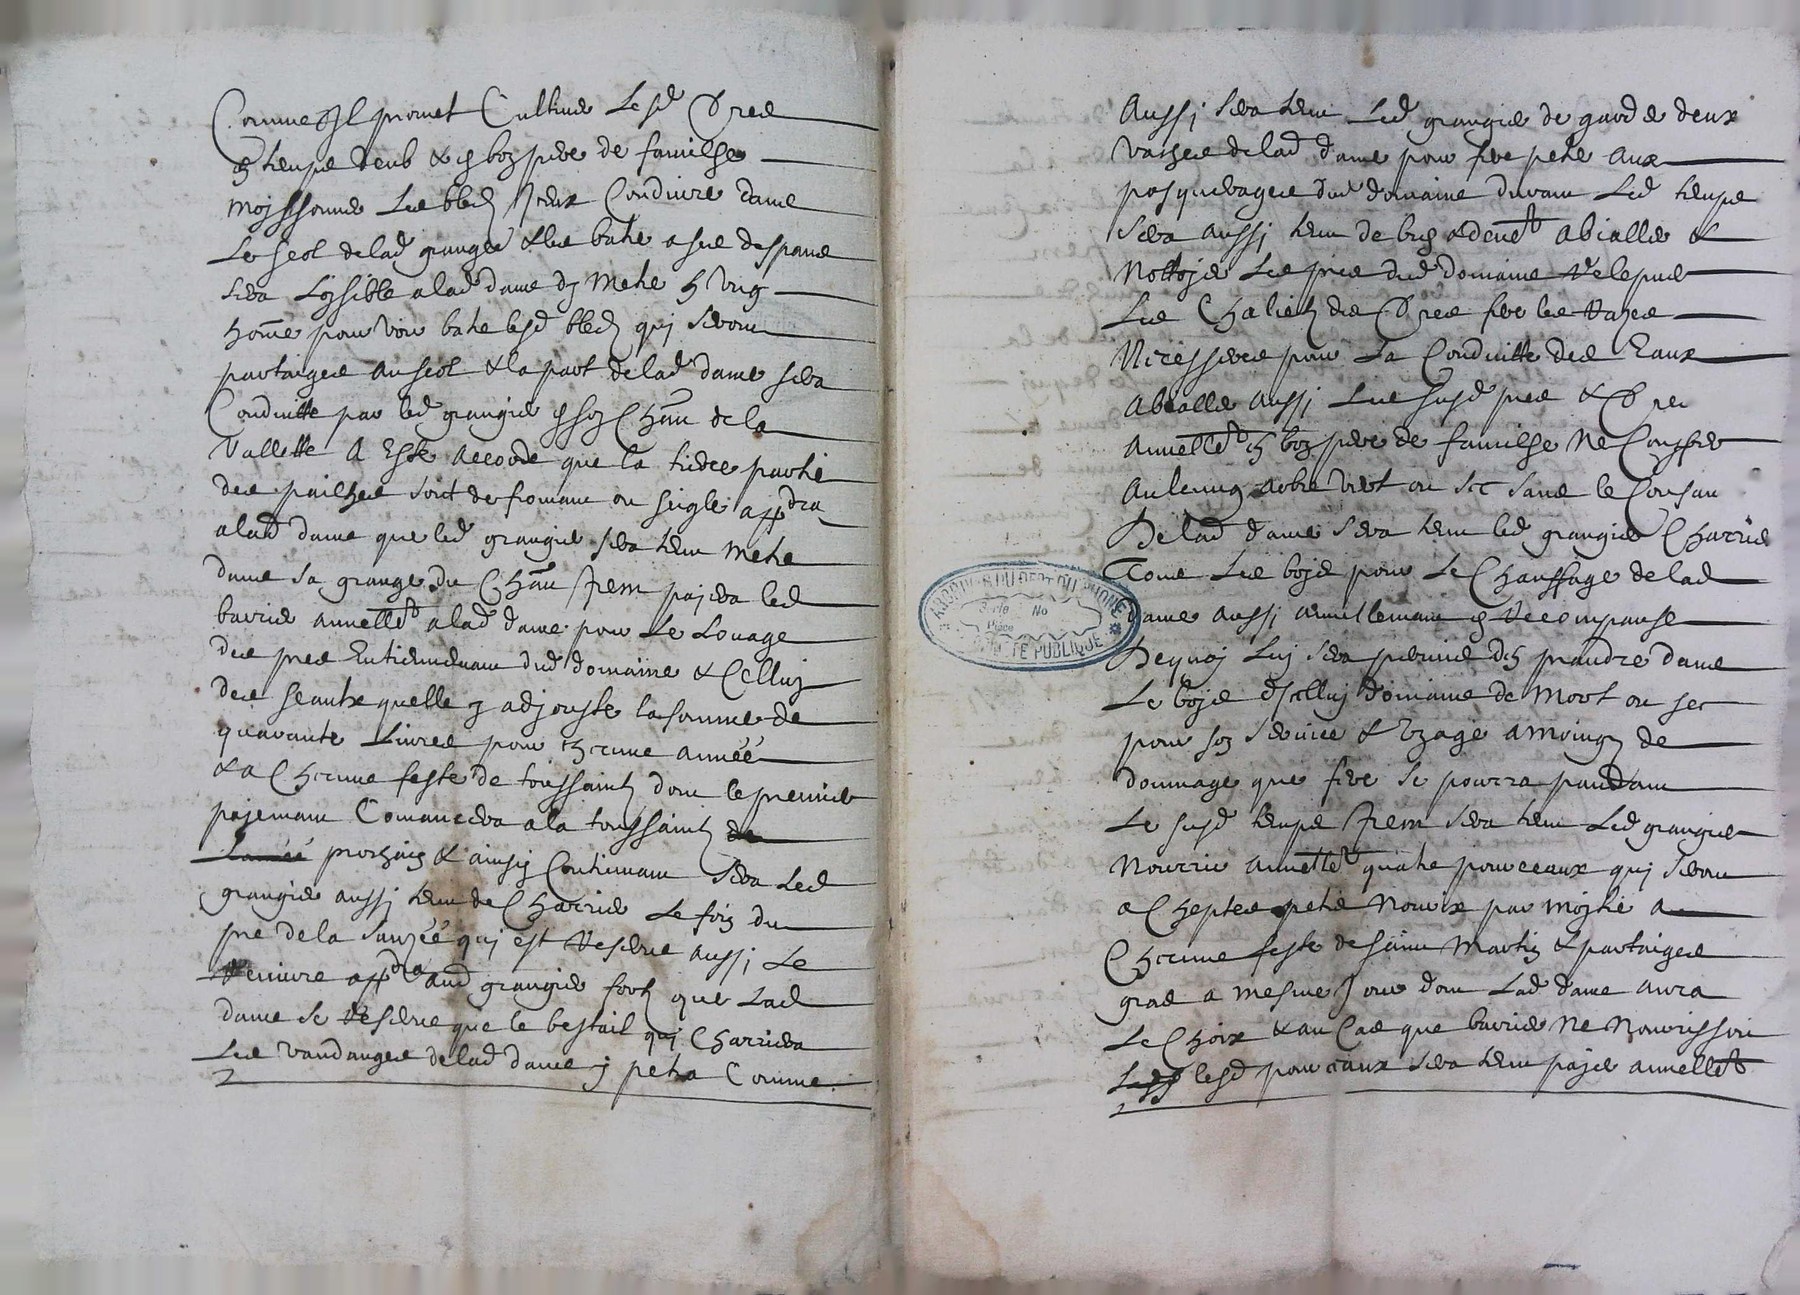 Comme Il promet Cultiver Lesd tres
en temps deub & en bon pere de familhe
Mojssonner Les bledz Iceux Conduire dans
Le seol delad grange & les batre a ses despans
sera Loisible alad dame dy Metre h ung
home pour voir batre lesd bledz qui seront
partaiges au seol & la part delad dame sera
Conduitte par led grangier en son Chau de la
Vallette A Este accorde que la tierce partie
des pailhes soit de fromant ou seigle appdra
alad dame que led grangier sera tenu Metre
dans sa grange du Chau Item pajera led
barrier annellemt alad dame pour Le Louage
des pres Entierement dud domaine & Celluy
des seautx quelle y adjouste la somme de
quarante Livres pour chcune année
& a Chcune feste de toussainctz dont le premier
pajemant Comancera ala toussainctz de
Lanéé prochain & ainsin Continuant Sera Led
grangier aussi tenu de Charrier Le foin du
pre de la sauzéé qui est Reserve aussi Le
Reviuvre appdra aud grangier fors que Lad
dame se Reserve que le bestail qui Charriera
Les vandanges delad dame y petra Comme
Aussi sera tenu Led grangier de garder deux
vaches delad dame pour fere petre aux
pasquerages dud domaine durant Led temps
Sera aussi tenu de bien & deuemt abialler &
Nottojer Les pres dud domaine & Relepver
Les Chalietz des tres fere les Razes
Nicesseres pour La Conduitte des Eaux
Abialler aussi Les susd pres & tres
Annellemt en bon pere de familhe Ne Coupper
Aulcung arbre vert ou sec sans le Consant
Delad dame sera tenu led grangier Charrier
Tous Les bojs pour Le Chauffage delad
dame aussi annuellemant en Recompanse
Dequoj Luj sera permis den prandre dans
Le bojs d'Icelluj domaine de Mort ou sec
pour son service & Uzage a Moingz de
dommage que fere se pourra pandant
Le susd temps Item sera tenu Led grangier
Nourrir annellemt quatre pourceaux qui seront
a Cheptes petis Nourix par mojtie a
Chcune feste de saint Martin & partaiges
gras a mesme Jour dont Lad dame aura
Le Choix & au Cas que barrier Ne Nourissoit
lesd pourceaux sera tenu pajer annellemt
ARCHIVES DU DEPt DU RHONE
Serie No
Pièce
PUBLIQUE